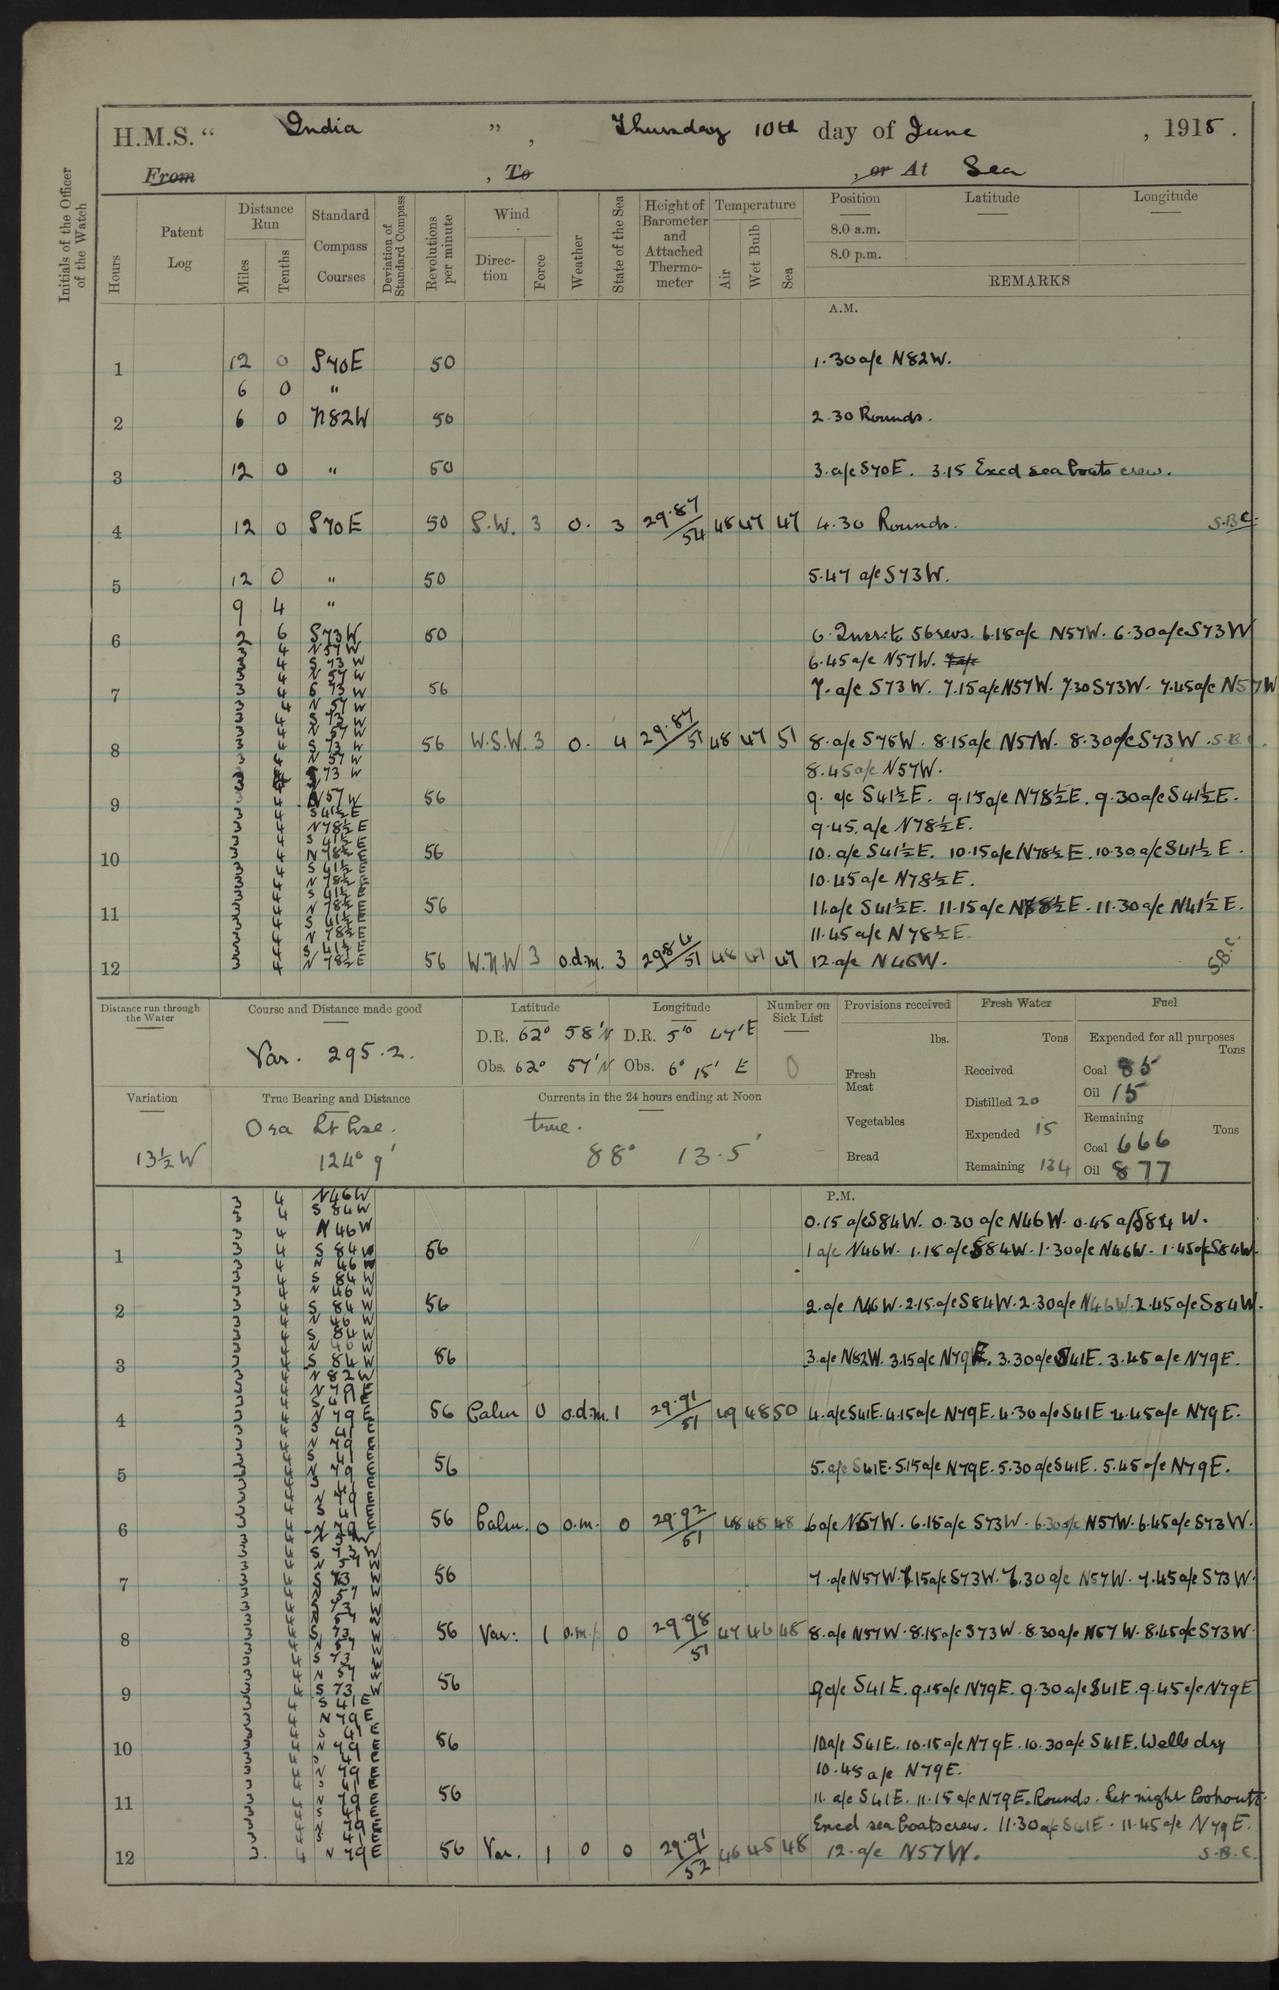 H.M.S. “ India ” , Thursday 10th day of June , 1915 .
From , To , or At Sea
Initials of the Officer of the Watch
Hours
Patent Log
Distance Run
Miles
Tenths
Standard Compass Courses
Deviation of Standard Compass
Revolutions per minute
Wind
Direction
Force
Weather
State of the Sea
Height of Barometer and Attached Thermometer
Temperature
Air
Wet Bulb
Sea
Position Latitude Longitude
8.0 a.m.
8.0 p.m.
REMARKS
A.M.
1 12 0 S70E 50 1.30 a/c N82W.
6 0 "
2 6 0 N82W 50 2.30 Rounds.
3 12 0 " 50 3. a/c S70E. 3.15 Excd sea boats crew.
4 12 0 S70E 50 S.W. 3 o. 3 29.87/54 48 47 47 4.30 Rounds. S.B.C.
5 12 0 " 50 5.47 a/c S73W.
9 4 "
6 2 6 S73W 50 6. Incr: to 56 revs. 6.15 a/c N57W. 6.30 a/c S73W
3 4 N57W
3 4 S73W 6.45 a/c N57W.
3 4 N57W
7 3 4 S73W 56 7. a/c S73W. 7.15 a/c N57W. 7.30 S73W. 7.45 a/c N57W
3 4 N57W
3 4 S73W
3 4 N57W
8 3 4 S73W 56 W.S.W. 3 o. 4 29.87/51 48 47 51 8. a/c S75W. 8.15 a/c N57W. 8.30 a/c S73W. S.B.C.
3 4 N57W
3 4 S73W 8.45 a/c N57W.
9 3 4 N57W 56 9. a/c S41½E. 9.15 a/c N78½E. 9.30 a/c S41½E.
3 4 S41½E
3 4 N78½E 9.45. a/c N78½E.
3 4 S41½E
10 3 4 N78½E 56 10. a/c S41½E. 10.15 a/c N78½E. 10.30 a/c S41½E.
3 4 S41½E
3 4 N78½E 10.45 a/c N78½E.
3 4 S41½E
11 3 4 N78½E 56 11. a/c S41½E. 11.15 a/c N78½E. 11.30 a/c N41½E.
3 4 S41½E
3 4 N78½E 11.45 a/c N78½E.
3 4 S41½E
12 3 4 N78½E 56 W.N.W 3 o.d.m. 3 29.84/51 48 47 47 12. a/c N46W. S.B.C.
Distance run through the Water
Course and Distance made good
Var. 295.2.
Latitude Longitude
D.R. 62° 58'N D.R. 5° 47'E
Obs. 62° 57'N Obs. 6° 15' E
Number on Sick List
0
Provisions received
lbs.
Fresh Meat
Vegetables
Bread
Fresh Water
Tons
Received
Distilled 20
Expended 15
Remaining 134
Fuel
Expended for all purposes
Tons
Coal 85
Oil 15
Remaining
Tons
Coal 666
Oil 877
Variation
13½W
True Bearing and Distance
Ona Lt hse.
124° 9'
Currents in the 24 hours ending at Noon
true.
88° 13.5'
P.M.
3 4 N46W
3 4 S84W 0.15 a/c S84W. 0.30 a/c N46W. 0.45 a/c S84W.
3 4 N46W
1 3 4 S84W 56 1 a/c N46W. 1.15 a/c S84W. 1.30 a/c N46W. 1.45 a/c S84W.
3 4 N46W
3 4 S84W
3 4 N46W
2 3 4 S84W 56 2. a/c N46W. 2.15. a/c S84W. 2.30 a/c N46W. 2.45 a/c S84W.
3 4 N46W
3 4 S84W
3 4 N46W
3 3 4 S84W 56 3 a/c N82W. 3.15 a/c N79E. 3.30 a/c S41E. 3.45 a/c N79E.
3 4 N82W
3 4 N79E
3 4 S41E
4 3 4 N79E 56 Calm 0 o.d.m. 1 29.91/51 49 48 50 4. a/c S41E. 4.15 a/c N79E. 4.30 a/c S41E 4.45 a/c N79E.
3 4 S41E
3 4 N79E
3 4 S41E
5 3 4 N79E 56 5. a/c S41E. 5.15 a/c N79E. 5.30 a/c S41E. 5.45 a/c N79E.
3 4 S41E
3 4 N79E
3 4 S41E
6 3 4 N79E 56 Calm. 0 o.m. 0 29.92/51 48 48 48 6 a/c N57W. 6.15 a/c S73W. 6.30 a/c N57W. 6.45 a/c S73W.
3 4 N57W
3 4 S73W
3 4 N57W
7 3 4 S73W 56 7. a/c N57W. 7.15 a/c S73W. 7.30 a/c N57W. 7.45 a/c S73W.
3 4 N57W
3 4 S73W
3 4 N57W
8 3 4 S73W 56 Var: 1 o.m. 0 29.98/51 47 46 48 8. a/c N57W. 8.15 a/c S73W. 8.30 a/c N57W. 8.45 a/c S73W.
3 4 N57W
3 4 S73W
3 4 N57W
9 3 4 S73W 56 9 a/c S41E. 9.15 a/c N79E. 9.30 a/c S41E. 9.45 a/c N79E
3 4 S41E
3 4 N79E
3 4 S41E
10 3 4 N79E 56 10 a/c S41E. 10.15 a/c N79E. 10.30 a/c S41E. Wells dry
3 4 S41E
3 4 N79E 10.45 a/c N79E.
3 4 S41E
11 3 4 N79E 56 11. a/c S41E. 11.15 a/c N79E. Rounds. Set night lookouts.
3 4 S41E
3 4 N79E Excd sea boats crew. 11.30 a/c S41E. 11.45 a/c N79E.
3 4 S41E
12 3 4 N79E 56 Var. 1 o 0 29.91/52 46 45 48 12. a/c N57W. S.B.C.